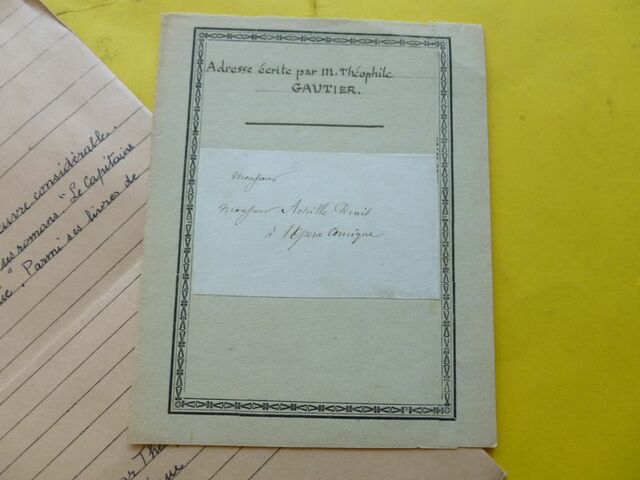 Adresse écrite par M. Théophile
GAUTIER.
Monsieur
Monsieur Achille Denis
à l'Opera Comique
œuvre considérable.
ses romans "Le Capitaine
". Parmi ses livres de